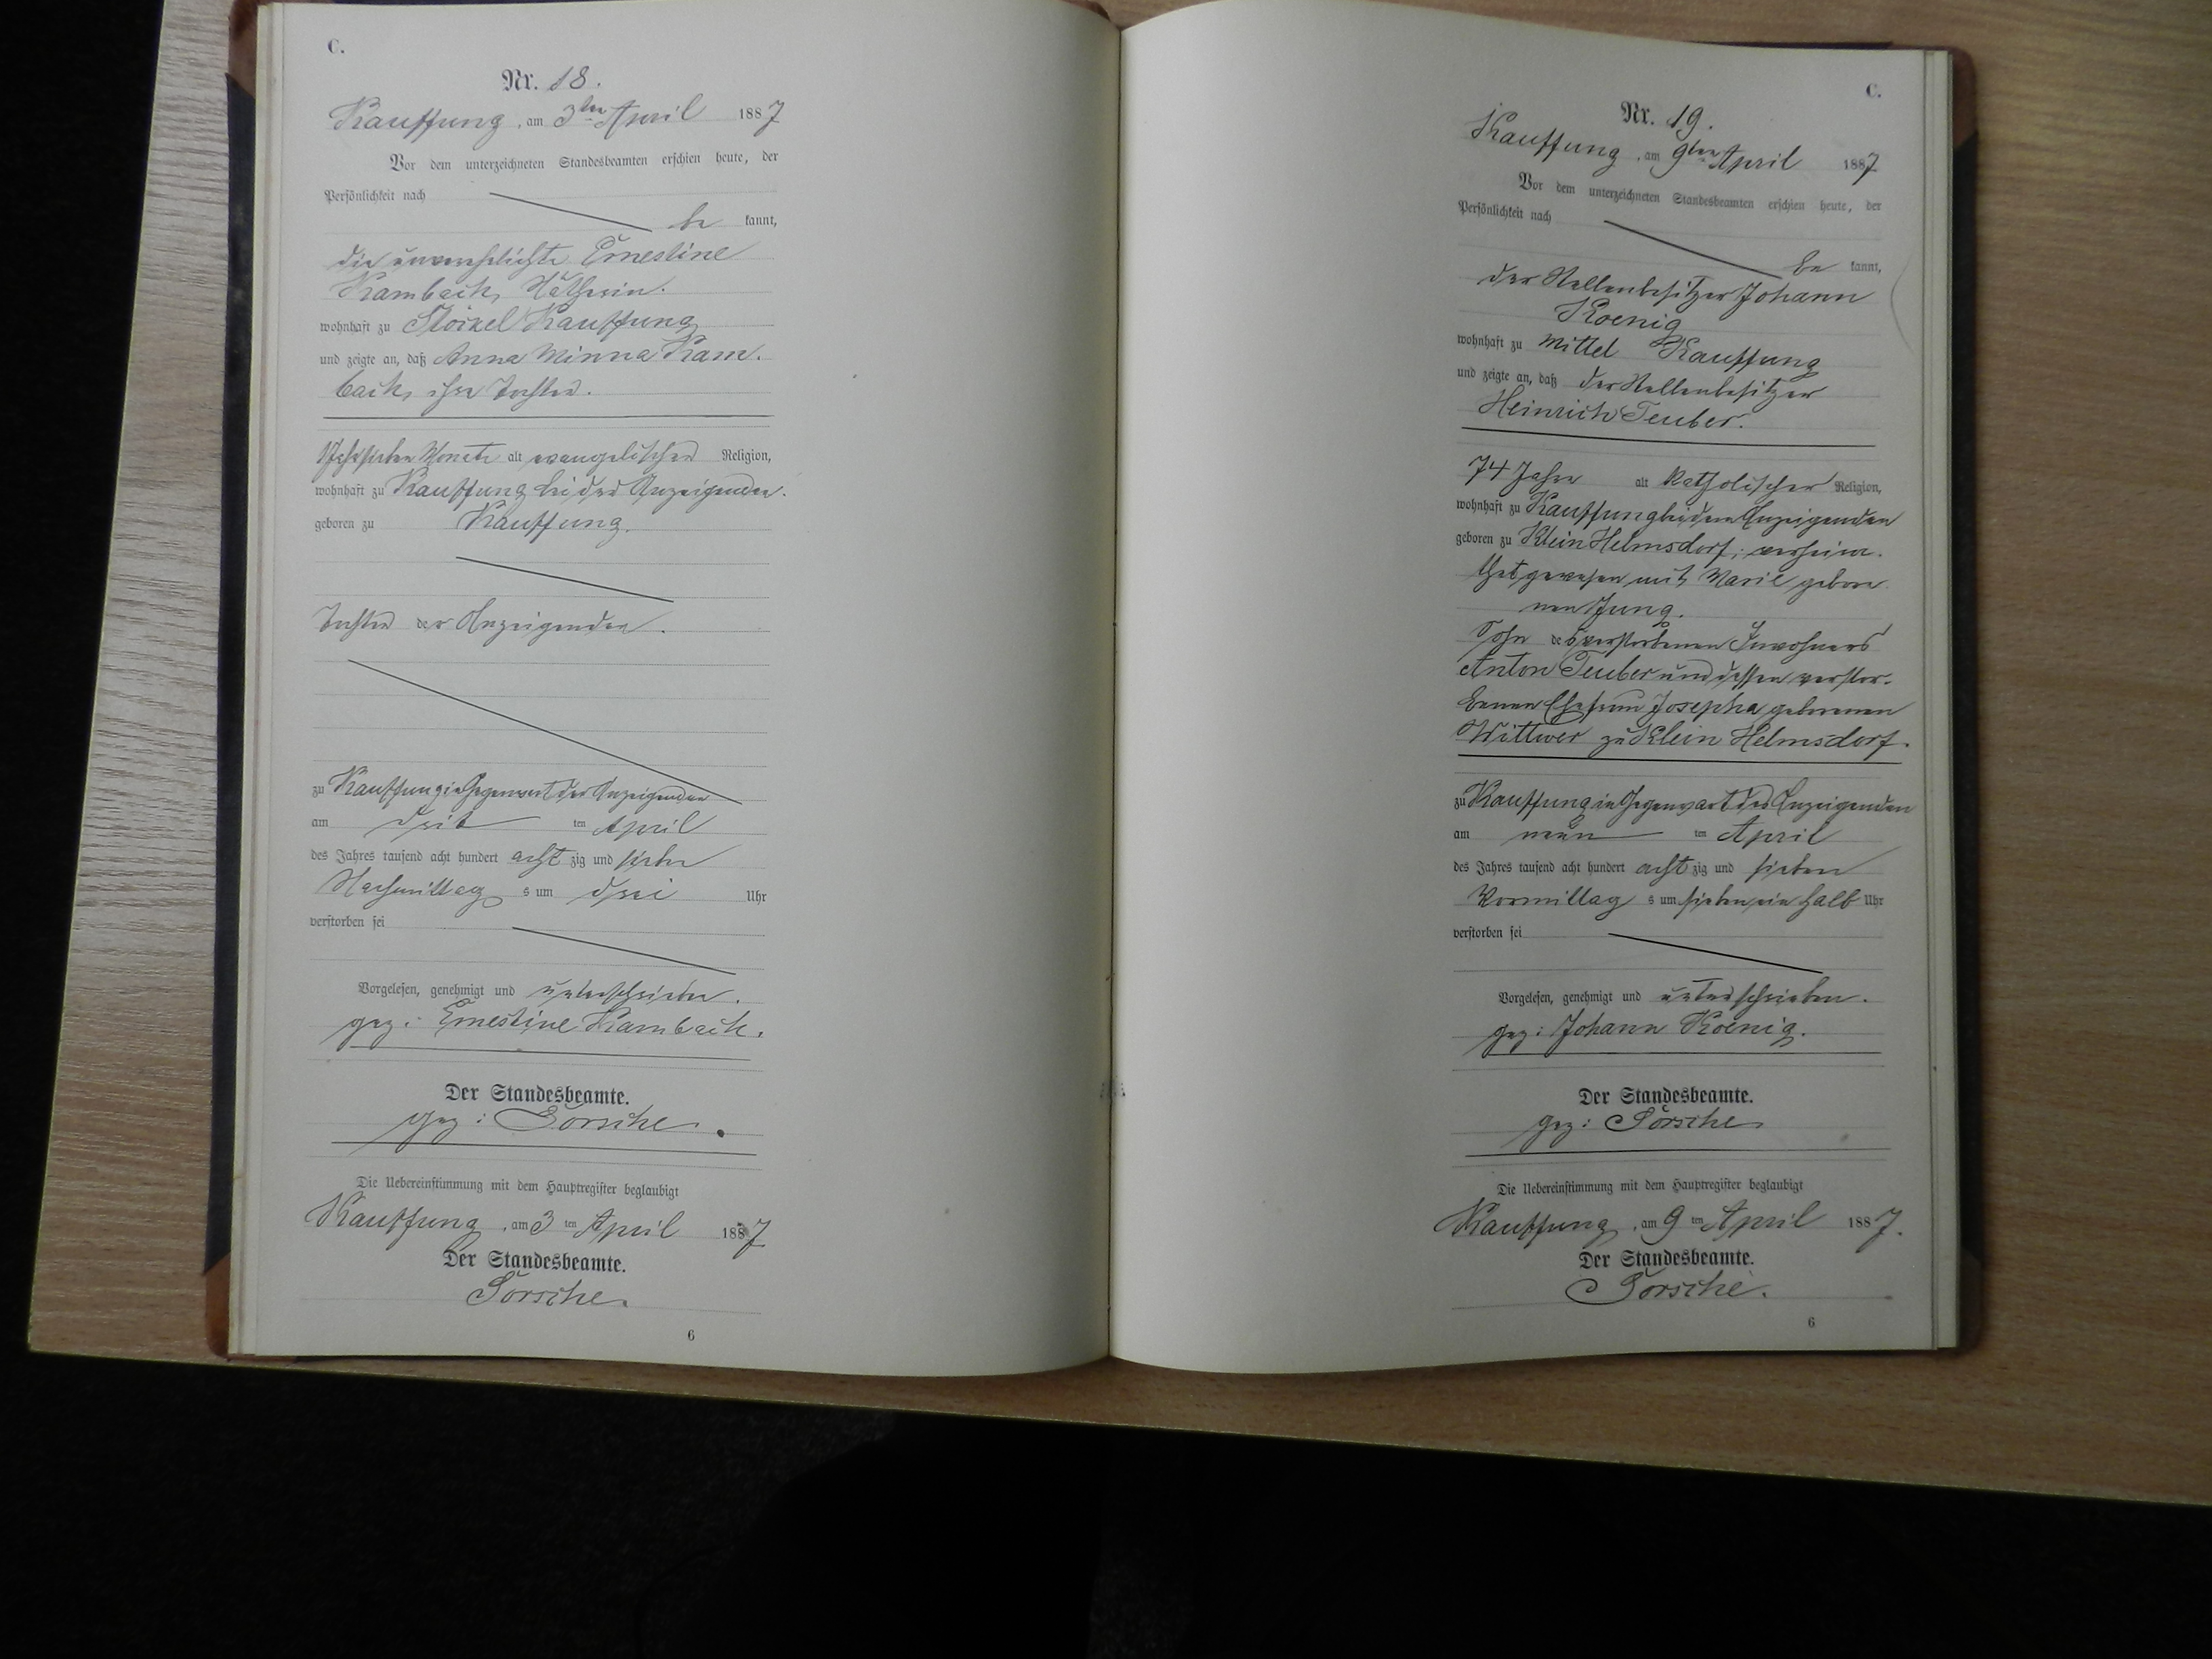 C.
Nr. 18.
Kauffung, am 3ten April 1887
Vor dem unterzeichneten Standesbeamten erschien heute, der
Persönlichkeit nach
be kannt,
die unverehelichte Ernestine
Kambach, Näherin.
wohnhaft zu Stöckel Kauffung
und zeigte an, daß Anna Minna Kam-
bach, ihre Tochter.
Monate alt evangelischer Religion,
wohnhaft zu Kauffung bei der Anzeigenden.
geboren zu Kauffung.
Tochter der Anzeigenden.
zu Kauffung in Gegenwart der Anzeigenden
am drit ten April
des Jahres tausend acht hundert acht zig und sieben
Nachmittag s um drei Uhr
verstorben sei
Vorgelesen, genehmigt und unterschrieben.
gez: Ernestine Kambach.
Der Standesbeamte.
gez: Sorsche.
Die Uebereinstimmung mit dem Hauptregister beglaubigt
Kauffung, am 3 ten April 1887
Der Standesbeamte.
Sorsche.
6
C.
Nr. 19.
Kauffung, am 9ten April 1887
Vor dem unterzeichneten Standesbeamten erschien heute, der
Persönlichkeit nach
be kannt,
der Stellenbesitzer Johann
Koenig
wohnhaft zu Mittel Kauffung
und zeigte an, daß der Stellenbesitzer
Heinrich Teuber.
74 Jahre alt katholischer Religion,
wohnhaft zu Kauffung bei dem Anzeigenden
geboren zu Klein Helmsdorf, verheira-
thet gewesen mit Marie gebore-
nen Jung.
Sohn des verstorbenen Inwohners
Anton Teuber und dessen verstor-
benen Ehefrau Josepha geborenen
Wittwer zu Klein Helmsdorf.
zu Kauffung in Gegenwart des Anzeigenden
am neun ten April
des Jahres tausend acht hundert acht zig und sieben
Vormittag s um sieben ein halb Uhr
verstorben sei
Vorgelesen, genehmigt und unterschrieben.
gez: Johann Koenig.
Der Standesbeamte.
gez: Sorsche
Die Uebereinstimmung mit dem Hauptregister beglaubigt
Kauffung, am 9 ten April 1887.
Der Standesbeamte.
Sorsche.
6